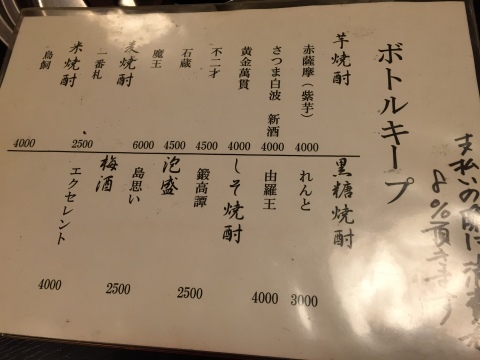 支払いの際に消費税
8%頂きます
ボトルキープ
芋焼酎
赤薩摩（紫芋） 4000
さつま白波 新酒 4000
黄金萬貫 4000
不二才 4500
石蔵 4500
魔王 6000
麦焼酎
一番札 2500
米焼酎
鳥飼 4000
黒糖焼酎
れんと 3000
由羅王 4000
しそ焼酎
鍛高譚 2500
泡盛
島思い 2500
梅酒
エクセレント 4000